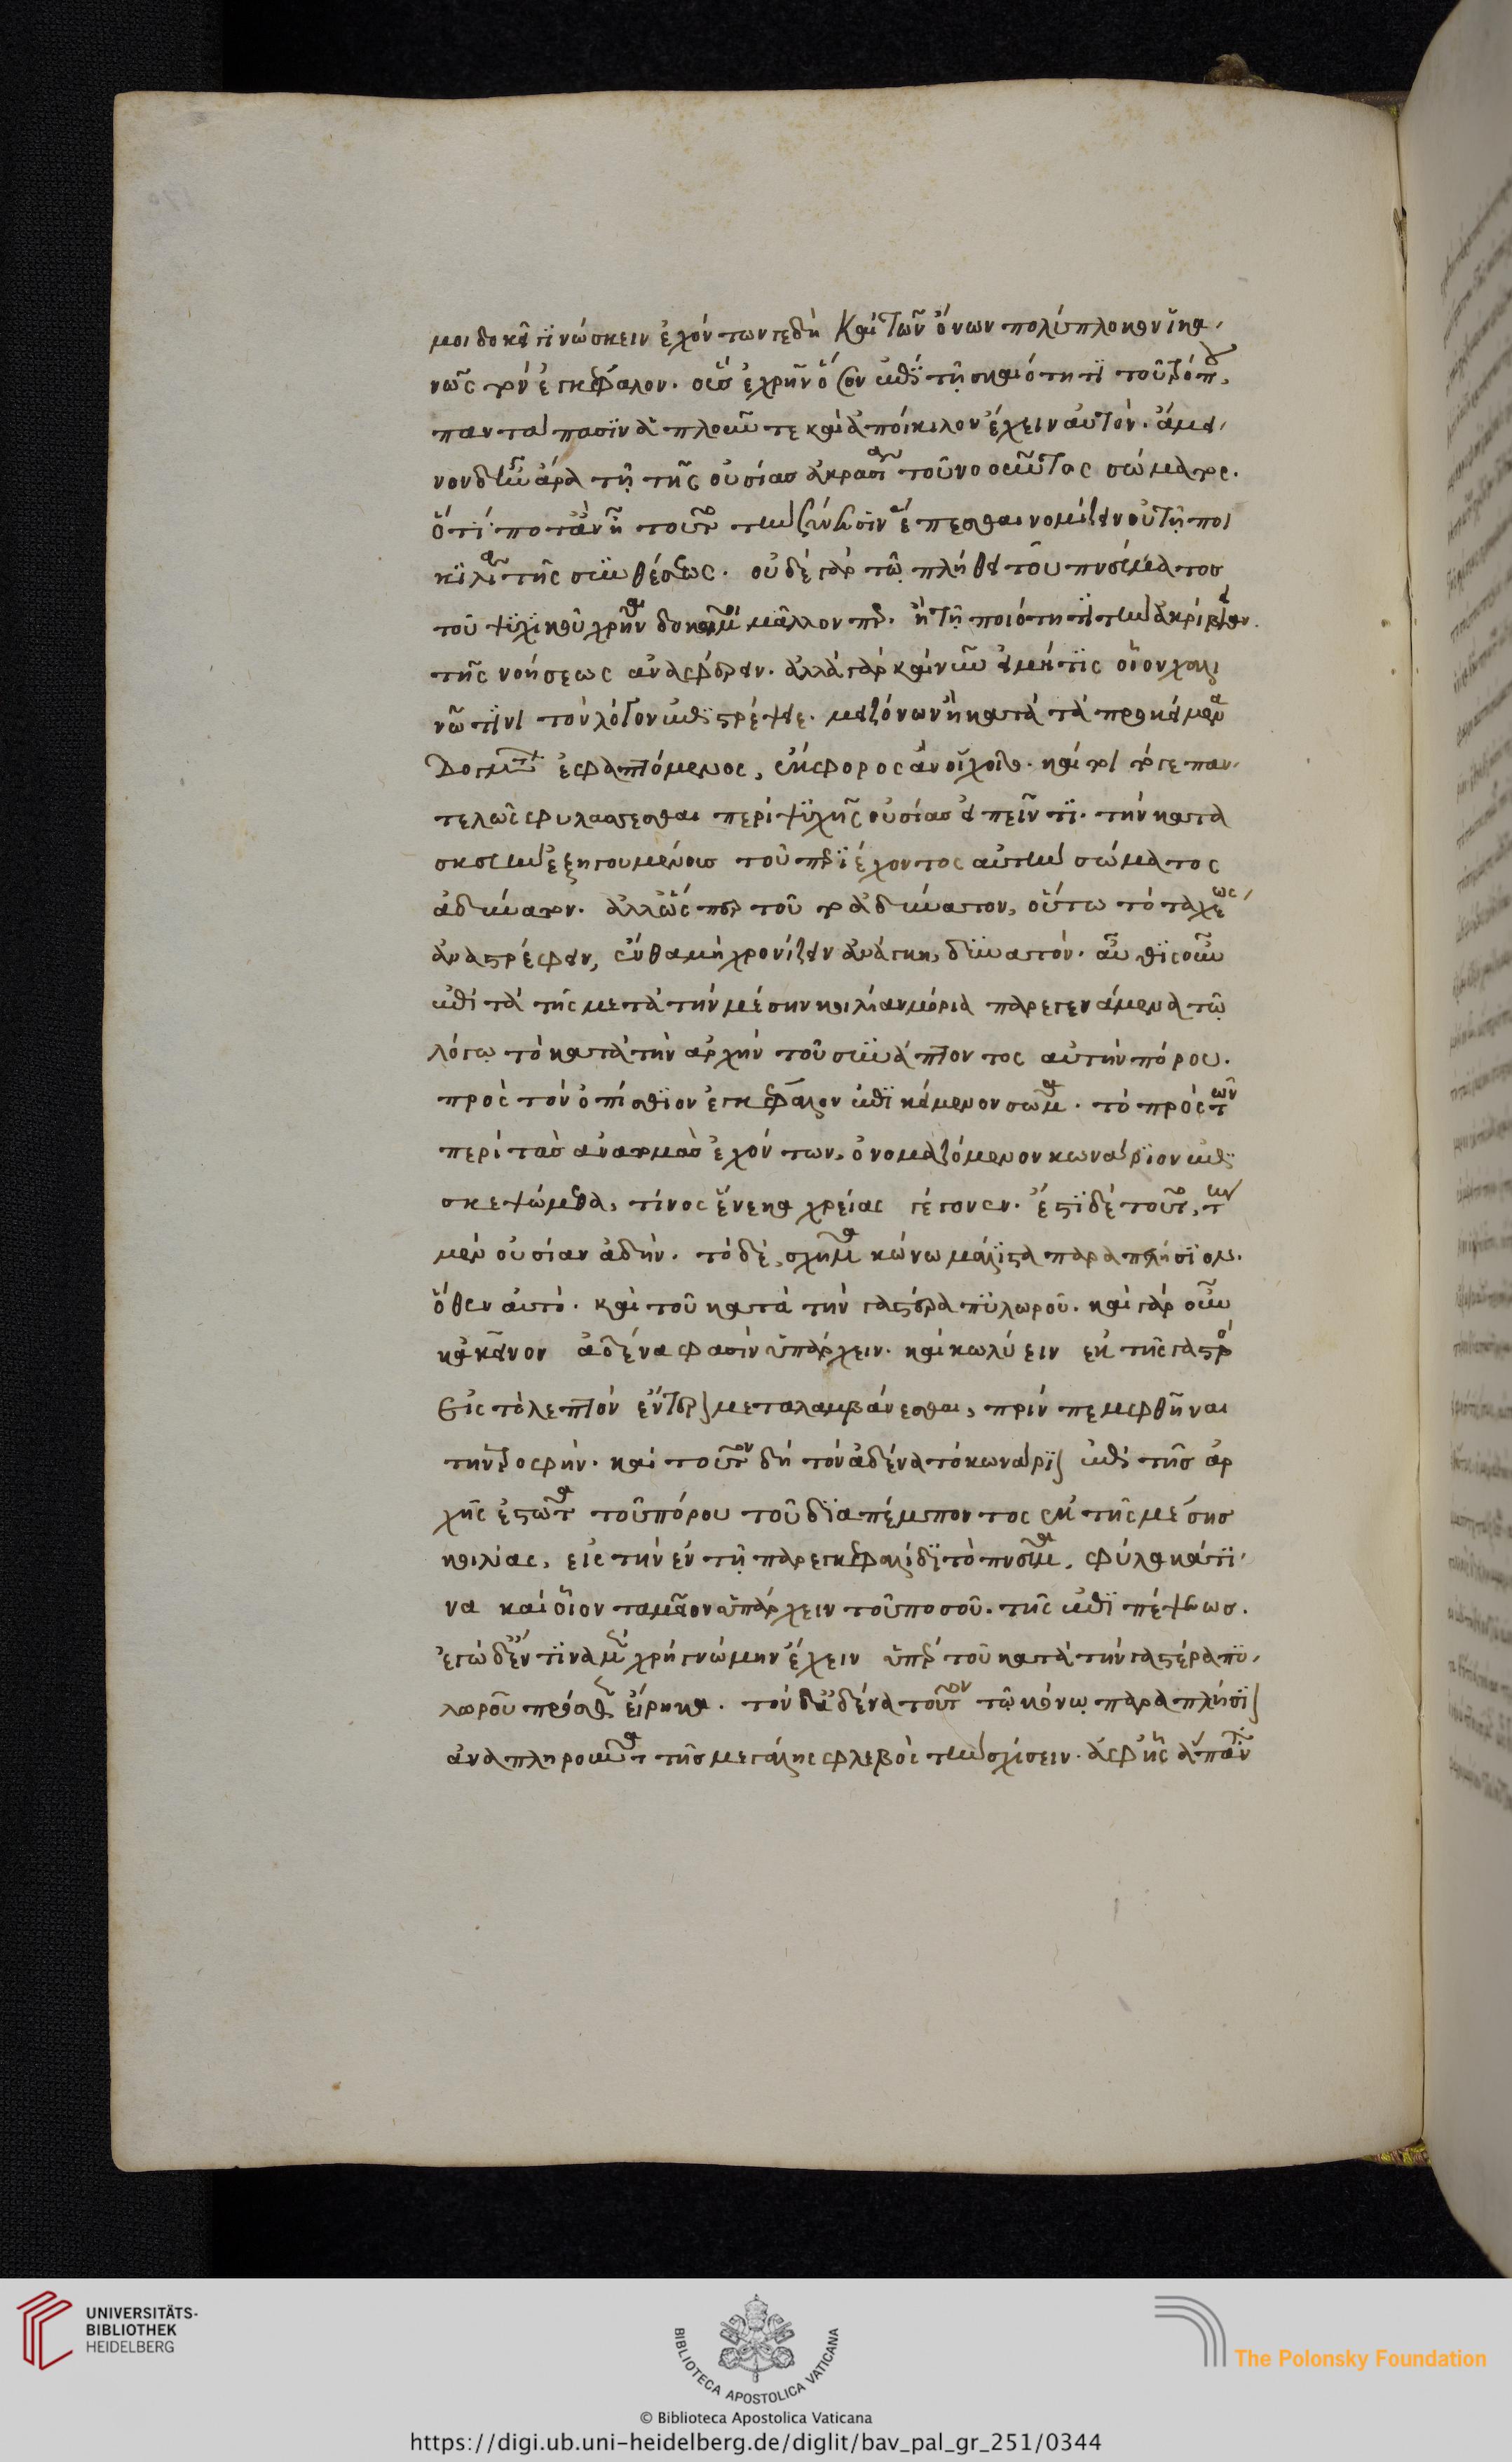 μοι δοκεῖ γινώσκειν ἐχόντων γε δὴ καὶ τῶν ὄνων πολύπλοκον ἱκα-
νῶς τὸν ἐγκέφαλον. οὓς ἐχρῆν ὅσον ἐπὶ τῇ σκαιότητι τοῦ τρόπου,
πανταπασιν ἁπλοῦν τε καὶ ἀποίκιλον ἔχειν αὐτόν. ἄμει-
νον δ' ἦν ἄρα τῇ τῆς οὐσίας εὐκρασίᾳ τοῦ νοοῦντος σώματος.
ὅ τί ποτ' ἂν ᾖ τοῦτο τὴν σύνεσιν ἕπεσθαι νομίζειν οὐ τῇ ποι
κιλίᾳ τῆς συνθέσεως. οὐδὲ γὰρ τῷ πλήθει τοῦ πνεύματος
τοῦ ψυχικοῦ χρῆναι δοκεῖ μοι μᾶλλον περ. ἢ τῇ ποιότητι τὴν ἀκρίβειαν
τῆς νοήσεως ἀναφέρειν. ἀλλὰ γὰρ καὶ νῦν εἰ μή τις οἷον χαλι
νῷ τινι τὸν λόγον ἐπιστρέψειε. μειζόνων ἢ κατὰ τὰ προκείμενα
δογμάτων ἐφαπτόμενος, ἔκφορος ἂν οἴχοιτο. καί τοι τό γε παν-
τελῶς φυλάσσεσθαι περὶ ψυχῆς οὐσίας εἰπεῖν τι. τὴν κατα
σκευὴν ἐξηγουμένοις τοῦ περιέχοντος αὐτὴν σώματος
ἀδύνατον. ἀλλ' ὥσπερ τοῦτο ἀδύνατον, οὕτω τὸ ταχέως
ἀναστρέφειν, ἔνθα μὴ χρονίζειν ἀνάγκη, δυνατόν. αὖθις οὖν
ἐπὶ τὰ τῆς μετὰ τὴν μέσην κοιλίαν μόρια παραγενάμενα τῷ
λόγῳ τὸ κατὰ τὴν ἀρχὴν τοῦ συνάπτοντος αὐτὴν πόρου.
πρὸς τὸν ὀπίσθιον ἐγκέφαλον ἐπικείμενον σῶμα. τὸ πρὸς τῶν
περὶ τὰς ἀνατομὰς ἐχόντων, ὀνομαζόμενον κωνάριον ἐπι
σκεψώμεθα, τίνος ἕνεκα χρείας γέγονεν. ἔστι δὲ τοῦτο, τὴν
μὲν οὐσίαν ἀδήν. τὸ δὲ, σχῆμα κώνῳ μάλιστα παραπλήσιον.
ὅθεν αὐτό. καὶ τοῦ κατὰ τὴν γαστέρα πυλωροῦ. καὶ γὰρ οὖν
κἀκεῖνον ἀδένα φασὶν ὑπάρχειν. καὶ κωλύειν ἐκ τῆς γαστρὸς
εἰς τὸ λεπτὸν ἔντερον μεταλαμβάνεσθαι, πρὶν πεμφθῆναι
τὴν τροφήν. καὶ τοῦτον δὴ τὸν ἀδένα τὸ κωνάριον ἐπὶ τῆς ἀρ
χῆς ἐστῶτα τοῦ πόρου τοῦ διαπέμποντος ἐκ τῆς μέσης
κοιλίας, εἰς τὴν ἐν τῇ παρεγκεφαλίδι τὸ πνεῦμα, φύλακά τι-
να καὶ οἷον ταμεῖον ὑπάρχειν τοῦ ποσοῦ. τῆς ἐπιπέμψεως.
ἐγὼ δ' ἥντινα μὲν χρὴ γνώμην ἔχειν ὑπὲρ τοῦ κατὰ τὴν γαστέρα πυ-
λωροῦ πρόσθεν εἴρηκα. τὸν δ' ἀδένα τοῦτον τῷ κώνῳ παραπλήσιον
ἀναπληροῦντα τῆς μεγάλης φλεβὸς τὴν σχίσειν. ἀφ' ἧς ἅπαντα
UNIVERSITÄTS-
BIBLIOTHEK
HEIDELBERG
BIBLIOTECA APOSTOLICA VATICANA
The Polonsky Foundation
© Biblioteca Apostolica Vaticana
https://digi.ub.uni-heidelberg.de/diglit/bav_pal_gr_251/0344